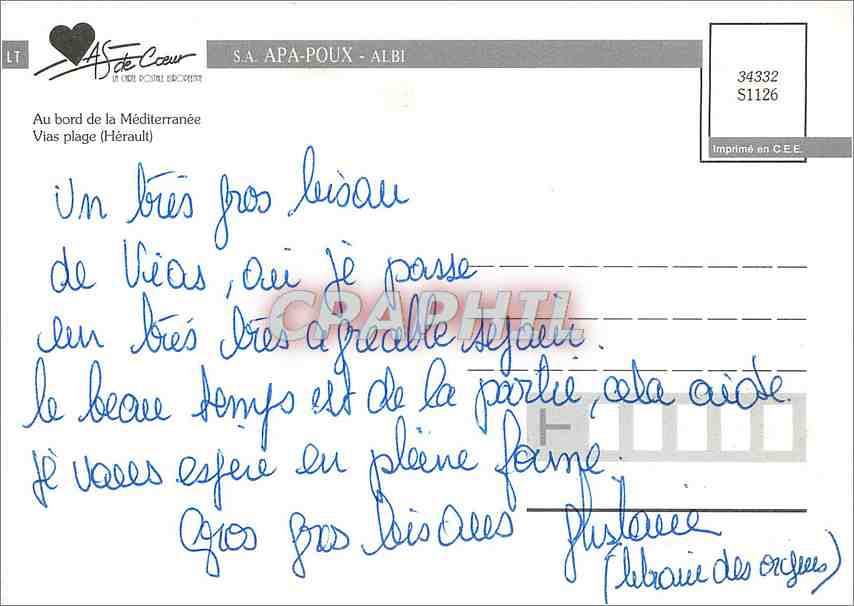 LT
As de Cœur
LA CARTE POSTALE EUROPÉENNE
S.A. APA-POUX - ALBI
34332
S1126
Imprimé en C.E.E.
Au bord de la Méditerranée
Vias plage (Hérault)
Un très gros bisou
de Vias, où je passe
un très très agréable séjour.
le beau temps est de la partie, cela aide.
Je vous espère en pleine forme.
Gros gros bisous Ghislaine
(libraire des orgues)
CPAPHIL